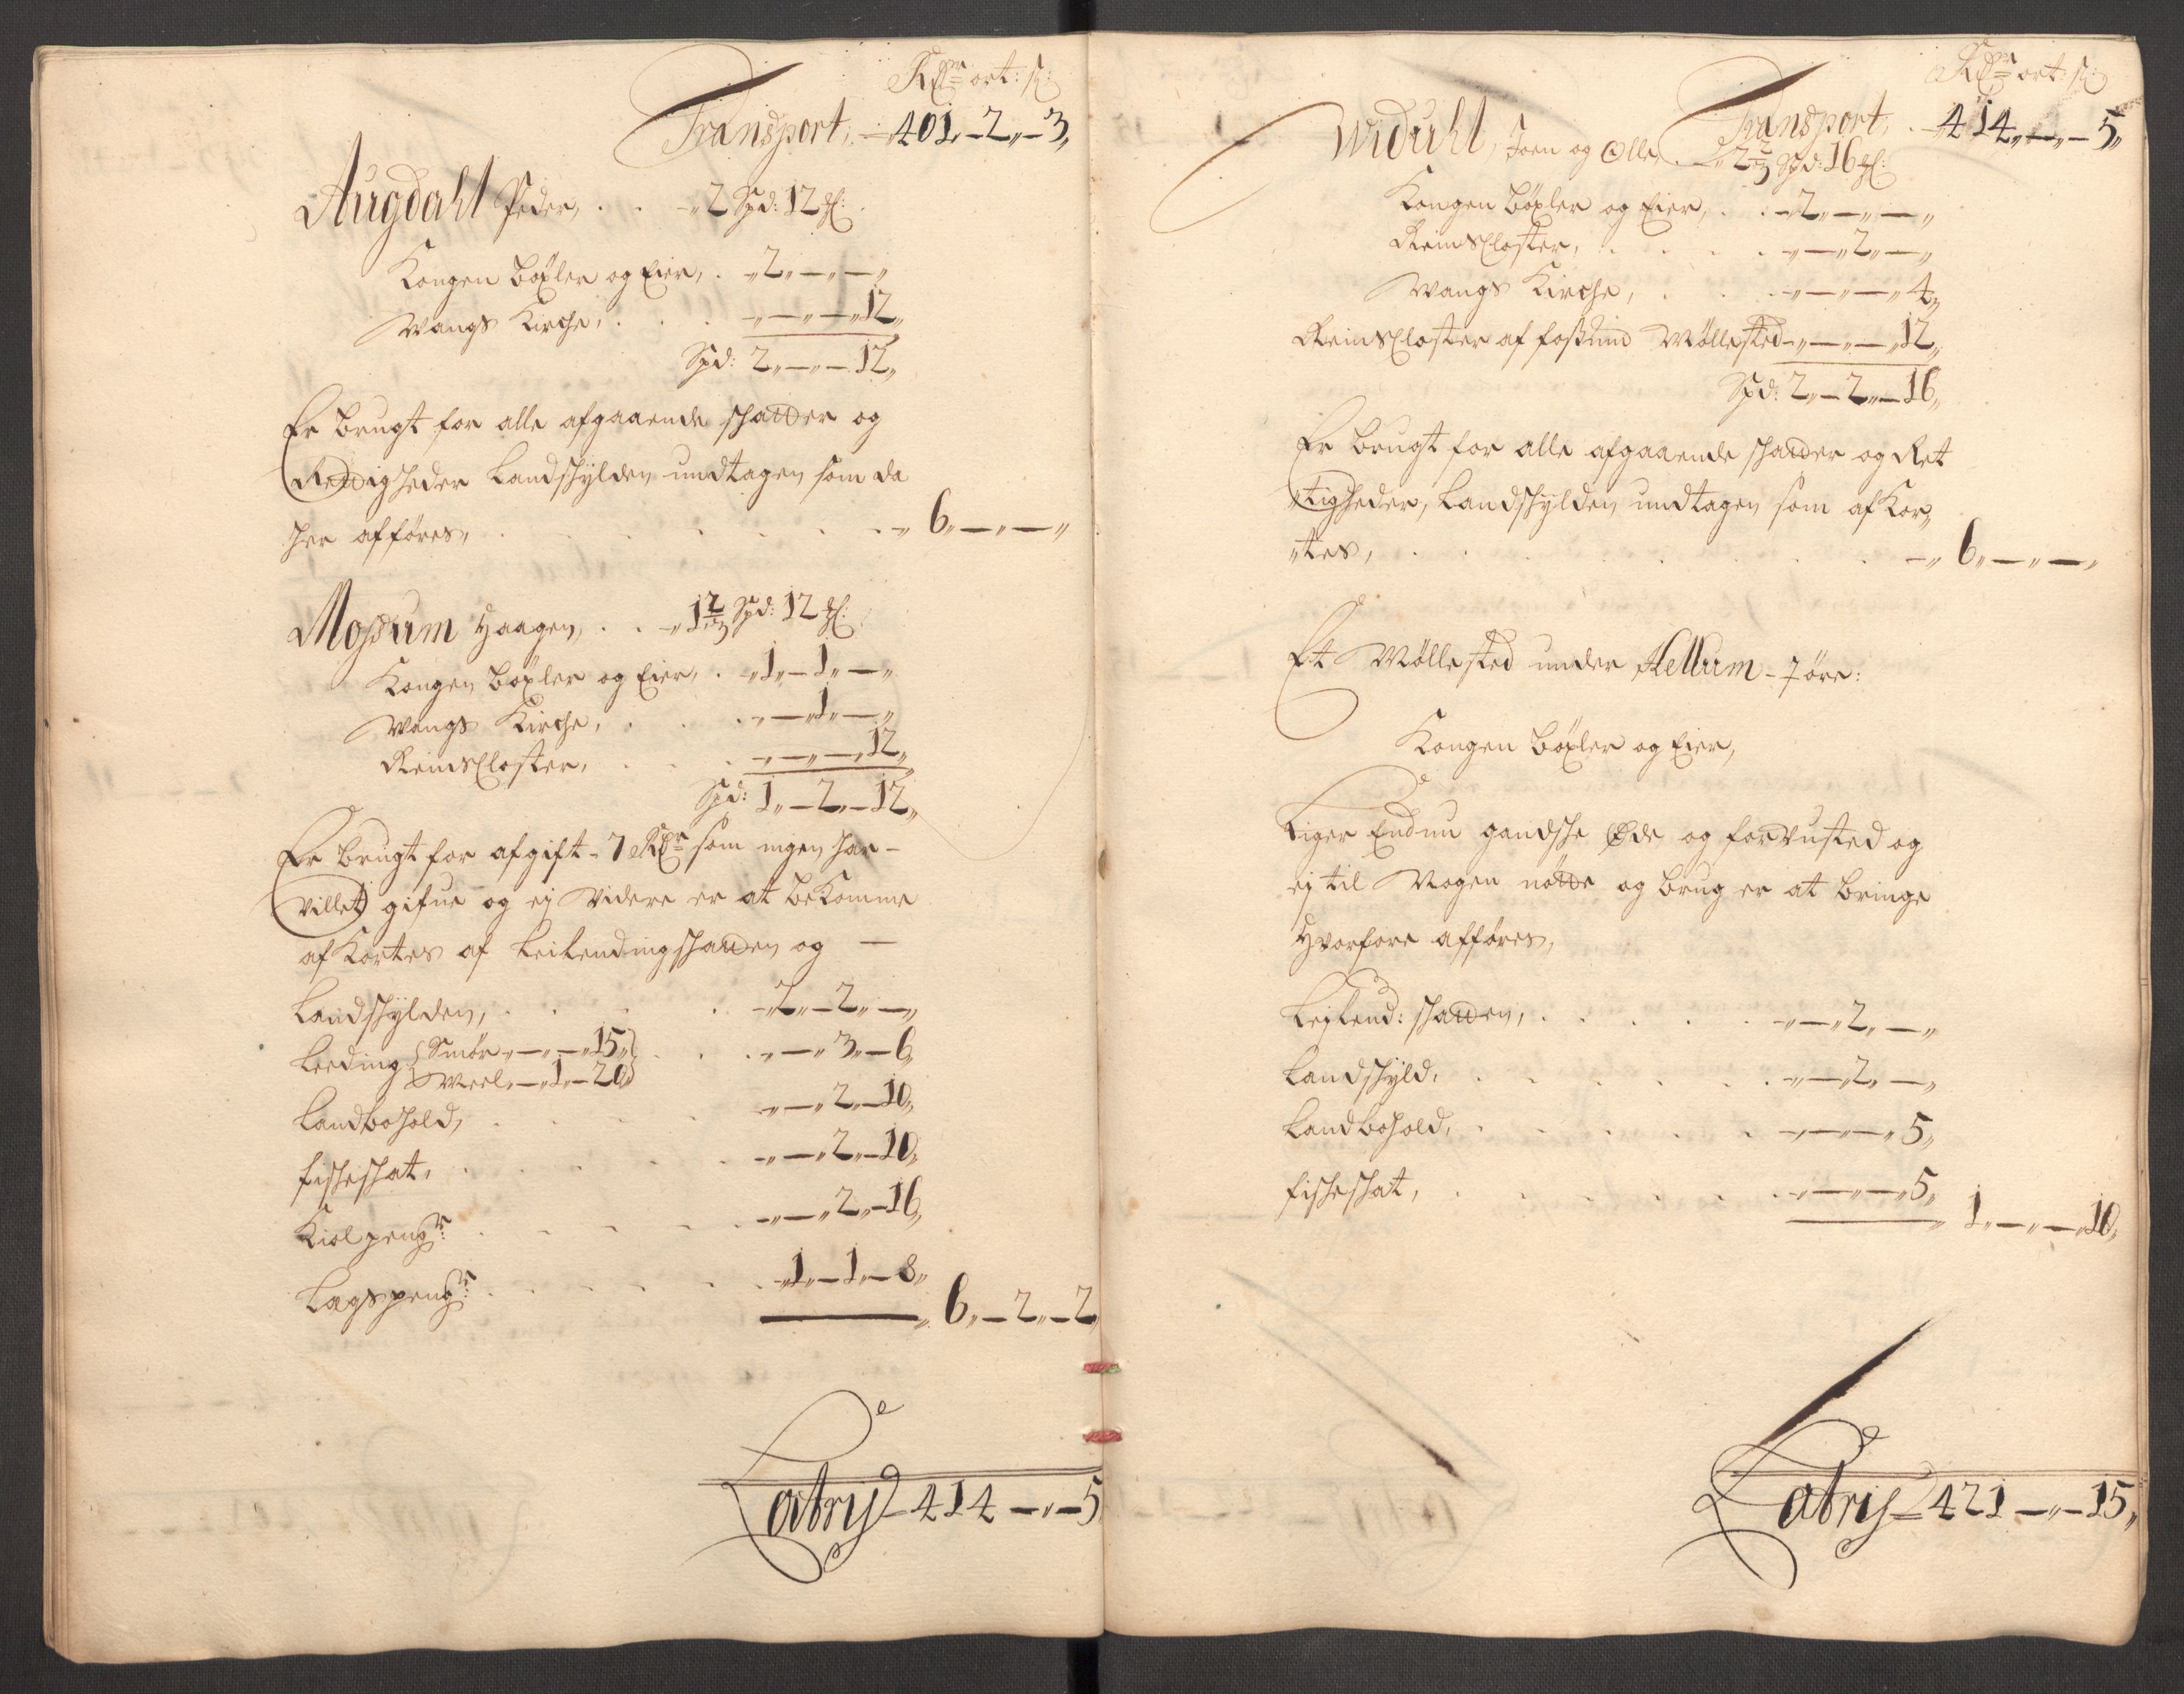 Rdr ort: s:
Transport, - 401 „ - 2 „ - 3 „
Augdahl Peder, . . - „ 2 Spd: 12 ℔:
Kongen böxler og Eier, . - „ 2 „ - „ - „
Wangs Kirche, . . . - „ - „ - „ 12 „
Spd: 2 „ - „ - 12 „
Er brugt for alle afgaaende schatter og
Rettigheder Landschylden undtagen som da
her afföres, . . . . . . . - „ 6 „ - „ - „
Mossum Haagen, . . - „ 1 2/3 Spd: 12 ℔:
Kongen böxler og Eier, . - „ 1 „ - 1 „ - „
Wangs Kirche, . . . - „ - „ 1 „ - „
Reins Closter, . . . - „ - „ - „ 12 „
Spd: 1 „ - 2 „ - 12 „
Er brugt for afgift - 7 Rdr som ingen har -
villet gifue og ej Videre er at bekomme
af Kortes af Leilendingschatten og -
Landschylden, . . . . - „ 2 „ - 2 „ - „
Leeding { Smör „ - „ - „ 15 „ } . . . - „ - „ 3 „ - 6 „
Meel „ - „ 1 „ - 20 „
Landbohold, . . . . - „ - „ 2 „ - 10 „
fischeschat, . . . . . - „ - „ 2 „ - 10 „
Kiol peng: . . . . . - „ - „ 2 „ - 16 „
Lagspeng: . . . . . - „ 1 „ - 1 „ - 8 „
„ 6 „ - 2 „ - 2
Latrs - 414 - „ - 5
Rdr ort: s:
Transport, - 414 „ - „ - 5 „
Widuhl, Joen og Olle, . - „ 2 2/3 Spd: 16 ℔:
Kongen böxler og Eier, . . - „ 2 „ - „ - „
Reins Closter, . . . . - „ - „ 2 „ - „
Wangs Kirche, . . . - „ - „ - „ 4 „
Reins Closter af fossum Möllested - „ - „ - „ 12 „
Spd: 2 „ - 2 „ - 16 „
Er brugt for alle afgaaende schatter og Ret
„tigheder, Landschylden undtagen som af Kor„
„tes, . . . . . . - „ 6 „ - „ - „
Et Möllested under Hellum - 7 öre:
Kongen böxler og Eier,
Liger Endnu gandsche Øde, og forrusted og
ej til Nogen nötte og brug er at bringe
Hvorfore afföres,
Lejlend: schatten, . . . . . - „ - „ 2 „ - „
Landschyld, . . . . . . - „ - „ 2 „ - „
Landbohold, . . . . . - „ - „ - „ 5 „
fischeschat, . . . . . . - „ - „ - „ 5 „
„ 1 „ - „ - „ 10 „
Latrs - 421 - „ - 15 „